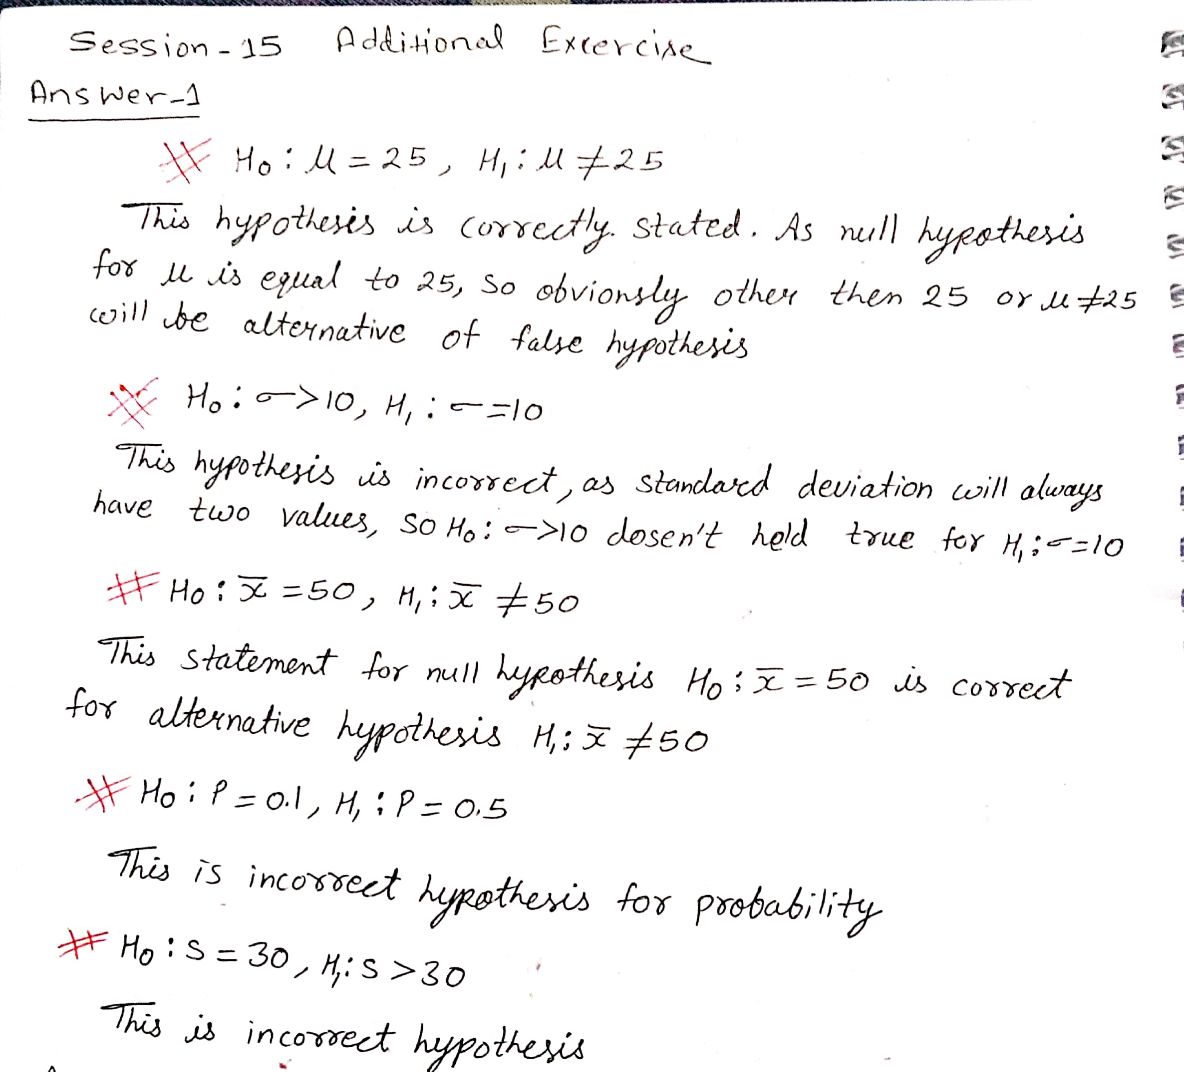 Session-15 Additional Excercise
Answer-1
# H₀ : μ = 25, H₁ : μ ≠ 25
This hypothesis is correctly. stated. As null hypothesis
for μ is equal to 25, so obvionsly other then 25 or μ≠25
will be alternative of false hypothesis
# H₀ : σ>10, H₁ : σ=10
This hypothesis is incorrect, as standard deviation will always
have two values, so H₀ : σ>10 dosen't held true for H₁ : σ=10
# H₀ : x̅ = 50, H₁ : x̅ ≠ 50
This statement for null hypothesis H₀ : x̅ = 50 is correct
for alternative hypothesis H₁ : x̅ ≠ 50
# H₀ : P = 0.1, H₁ : P = 0.5
This is incorrect hypothesis for probability
# H₀ : S = 30, H₁ : S > 30
This is incorrect hypothesis